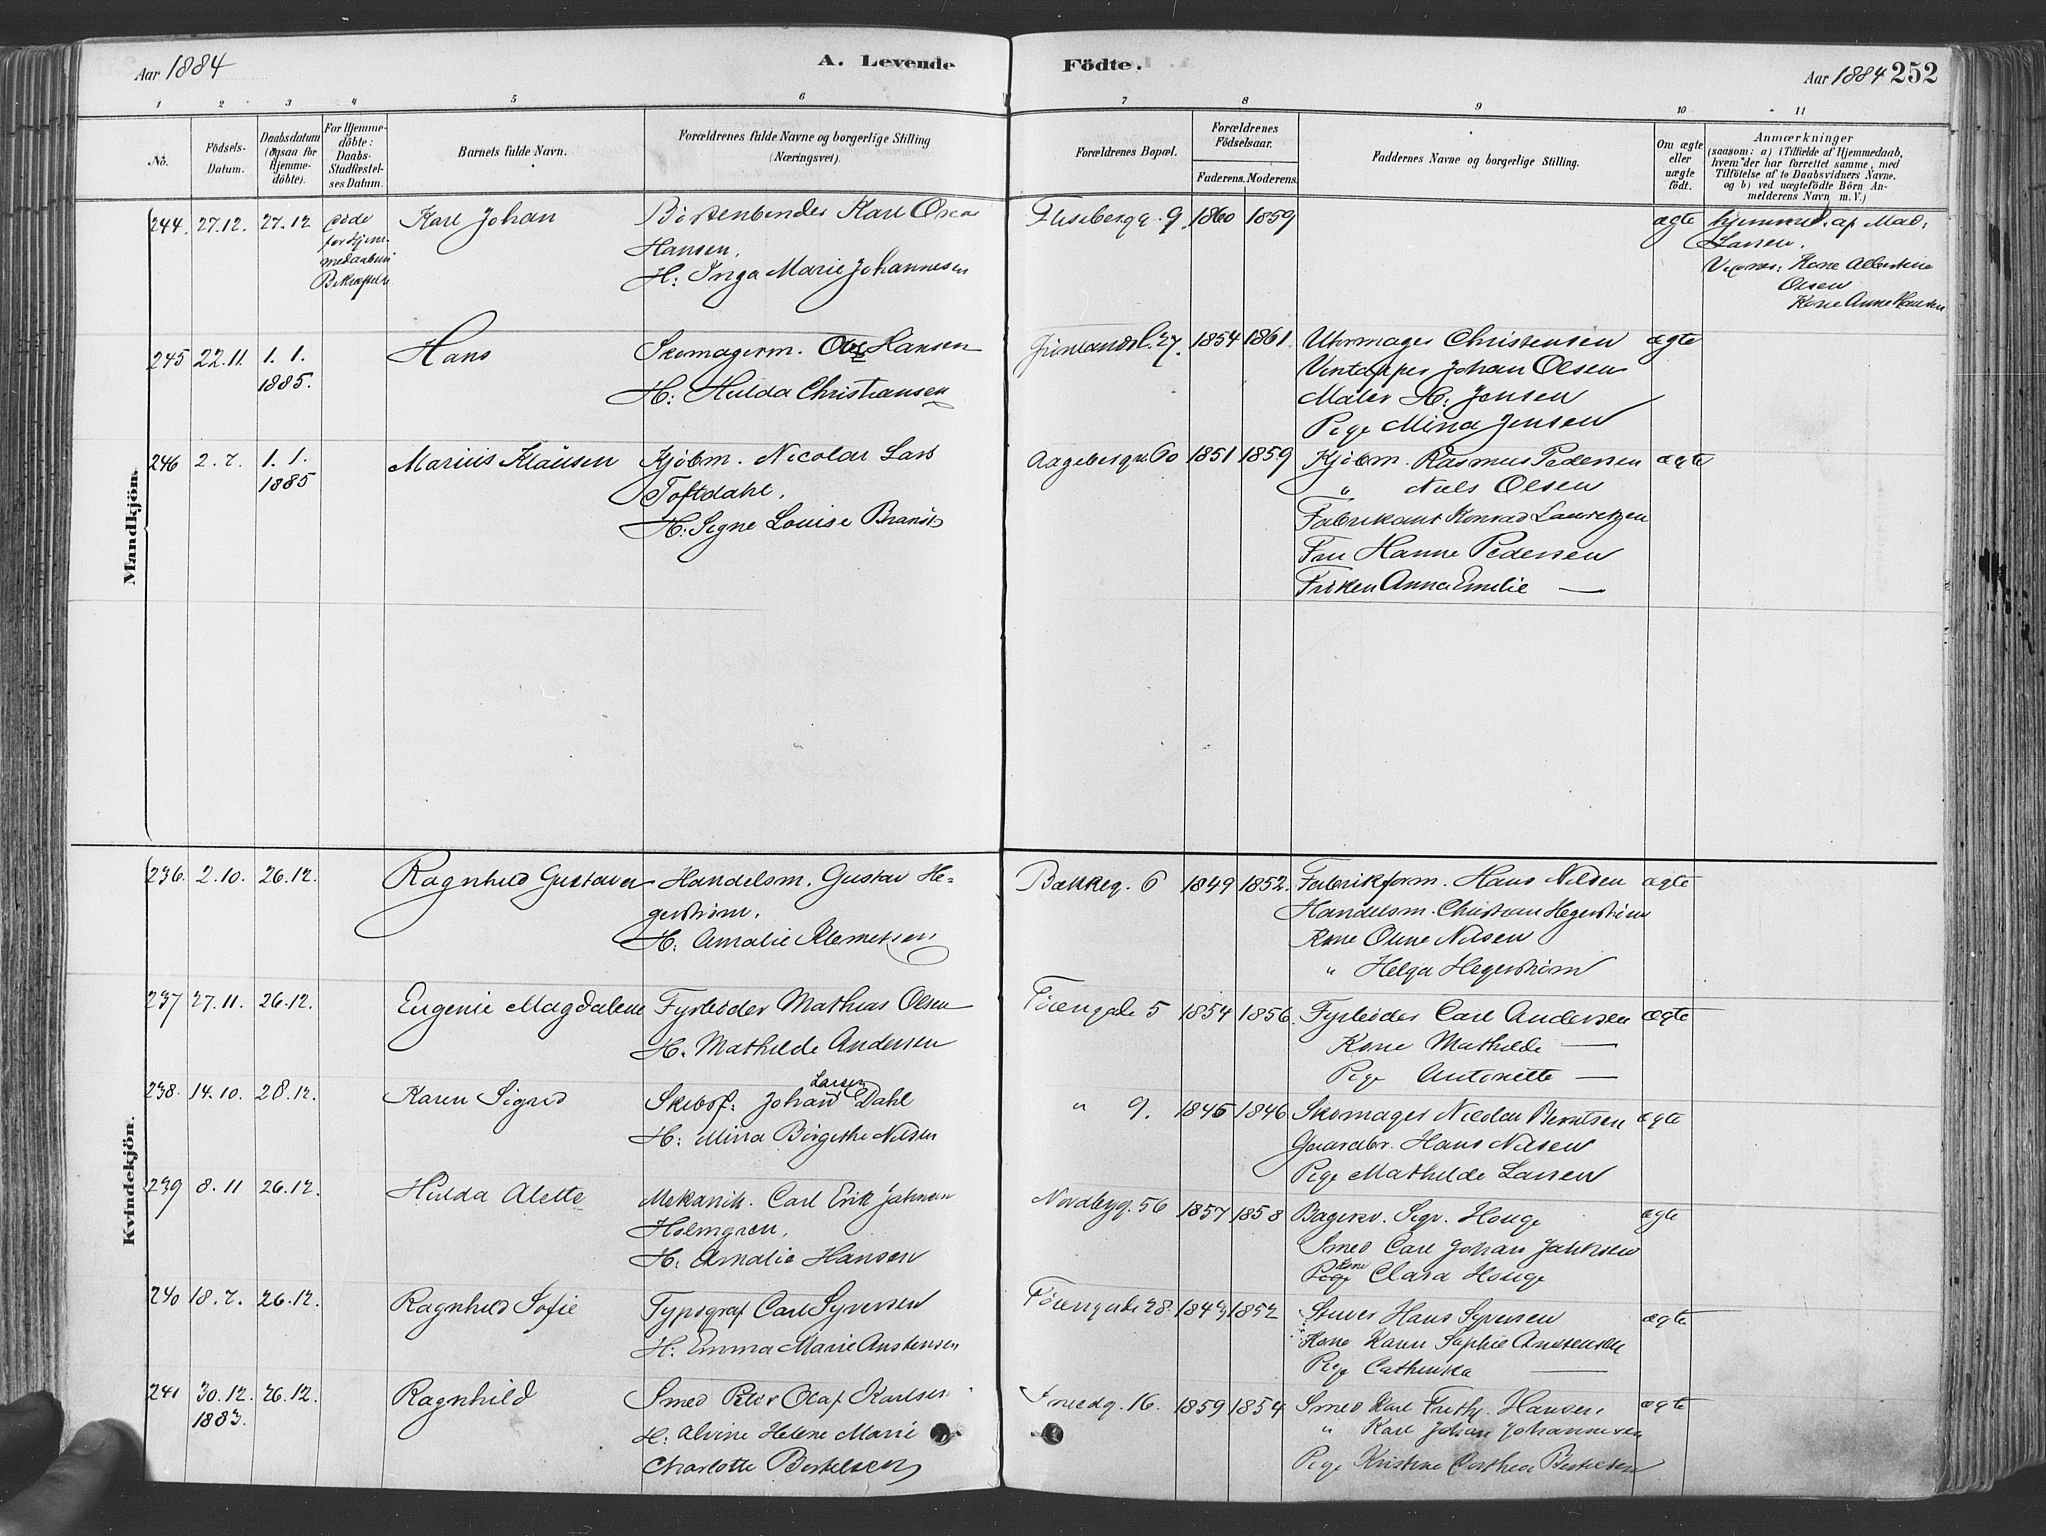 Aar 1884 A. Levende Födte. Aar 1884 252
1 2 3 4 5 6 7 8 9 10 11
No.
Födsels-
Datum.
Daabsdatum
(ogsaa for
Hjemme-
döbte).
For Hjemme-
döbte:
Daabs-
Stadfæstel-
ses Datum.
Barnets fulde Navn.
Forældrenes fulde Navne og borgerlige Stilling
(Næringsvei).
Forældrenes Bopæl.
Forældrenes
Födselsaar.
Faderens. Moderens.
Faddernes Navne og borgerlige Stilling.
Om ægte
eller
uægte
födt.
Anmærkninger
(saasom: a) i Tilfælde af Hjemmedaab,
hvem der har forrettet samme, med
Tilföielse af to Daabsvidners Navne,
og b) ved uægtefödte Börn An-
melderens Navn m. V.)
Mandkjön.
244. 27.12. 27.12 døde Karl Johan Børstenbinder Karl Oscar 9. 1860 1859 ægte hjemmed. af Mad.
før Hjem- Hansen. Larsen.
medaabens H: Inga Marie Johannesen Vidner: Kone Albertine
Bekræftelse Olsen
Kone Anne Hansen
245 22.11. 1.1. Hans Skomagerm. Hansen 27. 1854 1861. Uhrmager Christensen ægte
1885. H: Hulda Christiansen Vintapper Johan Olsen
Maler H: Jensen
Pige Mina Jensen
246 2.7. 1.1. Marius Klausen Kjøbm. Nicolai Lars Aagebergv. 60 1851 1859 Kjøbm. Rasmus Pedersen ægte
1885 Toftdahl. " Niels Olsen
H: Signe Louise Brandt Fabrikant Konrad Lauretzen
Fru Hanne Pedersen
Frøken Anna Emilie —
Kvindekjön.
236. 2.10. 26.12. Ragnhild Gustava Handelsm. Gustav He- Bakkeg. 6 1849 1852. Fabrikform. Hans Nilsen ægte
gerstrøm. Handelsm. Christian Hegerstrøm
H: Amalie Klemetsen Kone Oline Nilsen
" Helga Hegerstrøm
237 27.11. 26.12. Eugenie Magdalene Fyrbøder Mathias Olsen Tøiengade 5 1854 1856. Fyrbøder Carl Andersen ægte
H. Mathilde Andersen Kone Mathilde —
Pige Antonette —
238. 14.10. 28.12. Karen Sigrid Skibsf: Johan Larsen Dahl " 9. 1845 1846 Skomager Nicolai Berntsen ægte
H: Mina Birgithe Nilsen Gaardbr. Hans Nilsen
Pige Mathilde Larsen
239 8.11 26.12. Hulda Alette Mekanik. Carl Erik Johnsen Nordbyg. 56 1857 1858 Bagersv. Sigv. Houge ægte
Holmgren. Smed Carl Johan
H. Amalie Hansen Kone Clara Houge
240 18.7. 26.12. Ragnhild Sofie Typograf Carl Syversen Tøiengade 28. 1843 1852 Stuer Hans Syversen ægte
H: Emma Marie Anstensen Kone Karen Sophie Anstensen
Pige Cathinka —
241 30.12. 26.12. Ragnhild Smed Peter Olaf Karlsen Smedg. 16. 1859 1854 Smed Karl Frithj. Hansen ægte
1883. H: Alvine Helene Marie " Karl Johan Johannesen
Charlotte Bertelsen Pige Kristine Dorthea Bertelsen